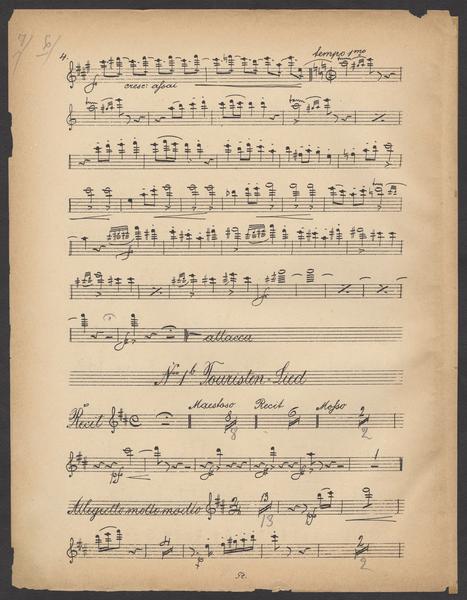 4.
tempo 1mo
cresc: assai
attacca
No 1b Touristen-Lied
Maestoso Recit Mosso
Recit 8 6 2
8 2
1
Allegretto molto modto 13
13
4 2
2